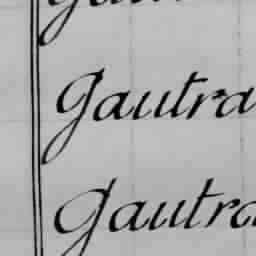 Gautra
Gautra